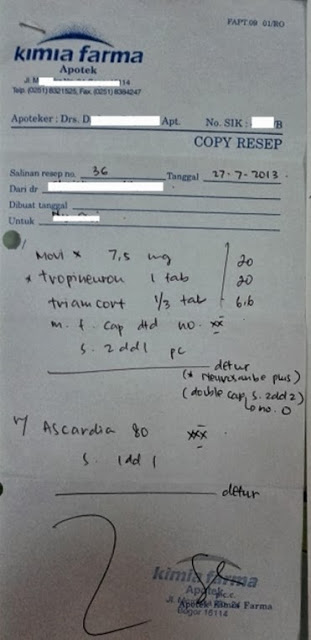 FAPT.09 01/RO
kimia farma
Apotek
Jl. M 114
Telp. (0251) 8321525, Fax. (0251) 8384247
Apoteker : Drs. D Apt. No. SIK : /B
COPY RESEP
Salinan resep no. 36 Tanggal 27-7-2013
Dari dr
Dibuat tanggal
Untuk
R/ Movix 7,5 mg 20
* tropineuron 1 tab 20
triamcort 1/3 tab 6,6
m.f. cap dtd no. XX
S. 2dd1 pc
detur
(* Neurosanbe plus)
(double cap S. 2dd2)
no. 0
R/ Ascardia 80 XXX
S. 1dd1
detur
kimia farma
Apotek
p.c.c.
Apotek Kimia Farma
Bogor 16114